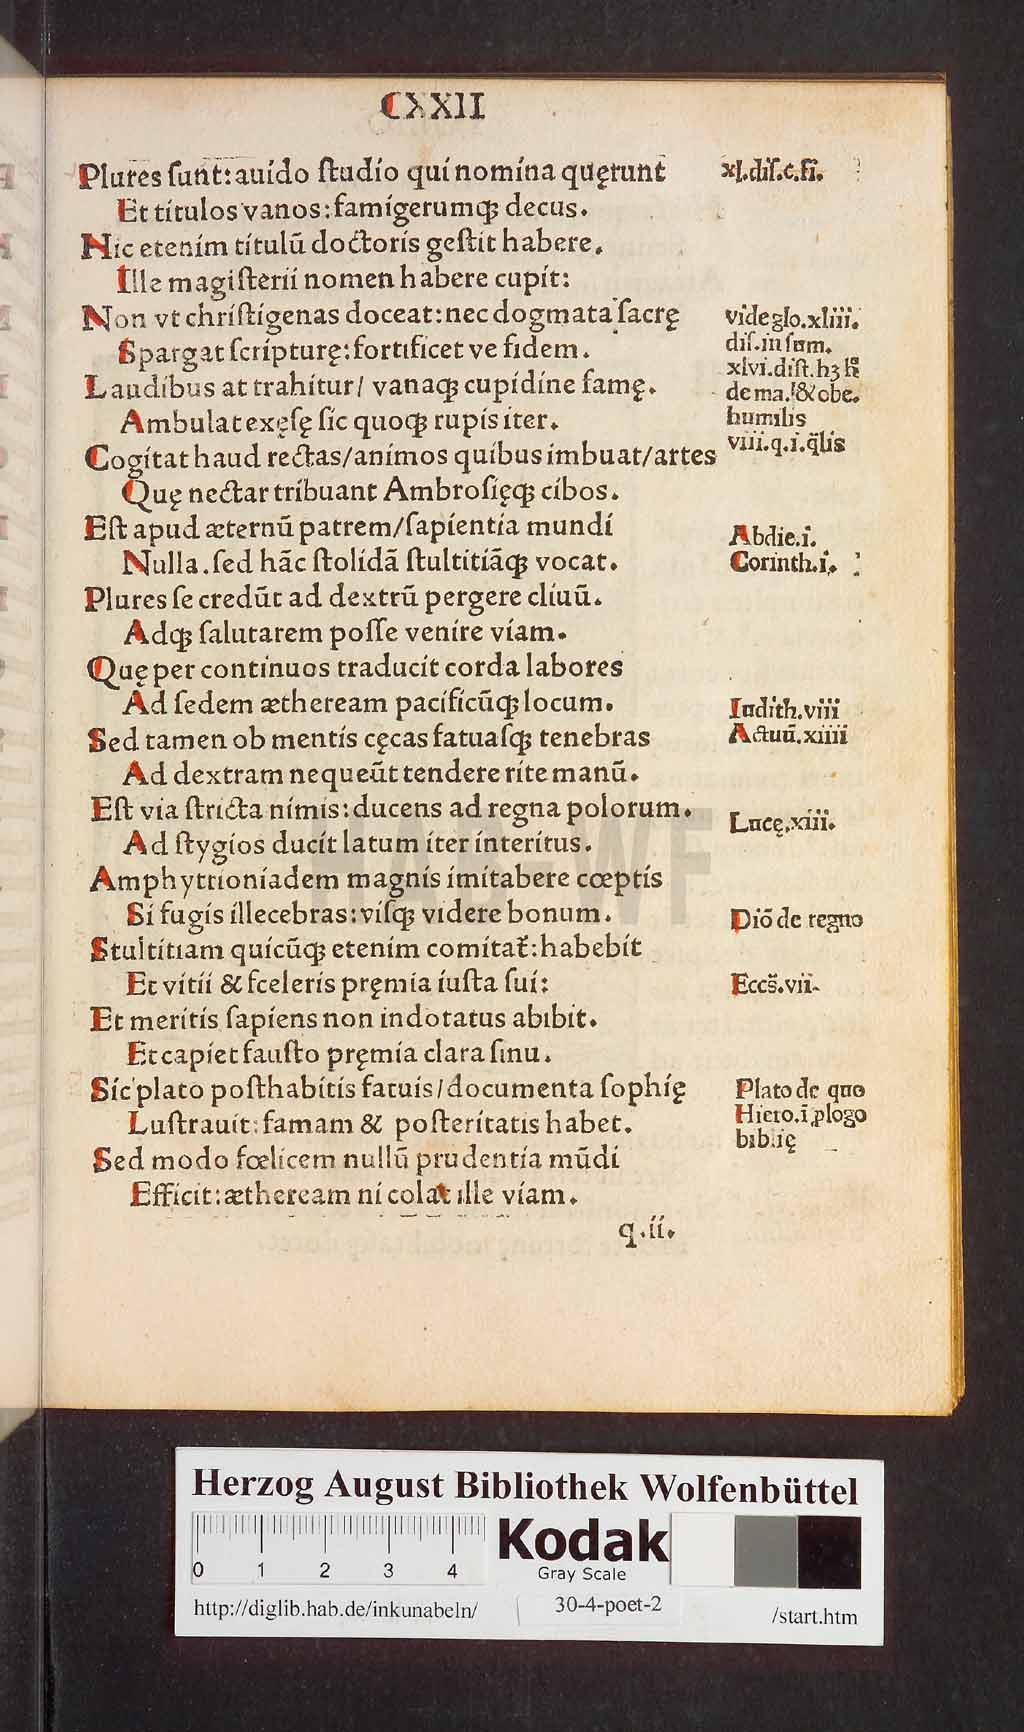 CXXII
Plures ſunt: auido ſtudio qui nomina quęrunt
xl.diſ.c.ſi.
Et titulos vanos: famigerumqꝫ decus.
Nic etenim titulū doctoris geſtit habere.
Ille magiſterii nomen habere cupit:
Non vt chriſtigenas doceat: nec dogmata ſacrę
vide glo.xliii.
Spargat ſcripturę: fortificet ve fidem.
diſ.in ſum.
xlvi.diſt.hꝫ
Laudibus at trahitur/ vanaqꝫ cupidine famę.
de ma.&obe.
Ambulat exęſę ſic quoqꝫ rupis iter.
humilis
Cogitat haud rectas/animos quibus imbuat/artes
viii.q.i.q̄lis
Quę nectar tribuant Ambroſięqꝫ cibos.
Eſt apud æternū patrem/ſapientia mundi
Abdie.i.
Nulla. ſed hāc ſtolidā ſtultitiāqꝫ vocat.
Corinth.i.
Plures ſe credūt ad dextrū pergere cliuū.
Adqꝫ ſalutarem poſſe venire viam.
Quę per continuos traducit corda labores
Ad ſedem æthereem pacificūqꝫ locum.
Iudith.viii
Sed tamen ob mentis cęcas fatuaſqꝫ tenebras
Actuū.xiiii
Ad dextram nequeūt tendere rite manū.
Eſt via ſtricta nimis: ducens ad regna polorum.
Lucę.xiii.
Ad ſtygios ducit latum iter interitus.
Amphytrioniadem magnis imitabere cœptis
Si fugis illecebras: viſqꝫ videre bonum.
Diō de regno
Stultitiam quicūqꝫ etenim comitat̄: habebit
Et vitii & ſceleris pręmia iuſta ſui:
Eccs̄.vii.
Et meritis ſapiens non indotatus abibit.
Et capiet fauſto pręmia clara ſinu.
Sic plato poſthabitis fatuis/documenta ſophię
Plato de quo
Luſtrauit: famam & poſteritatis habet.
Hiero.ī ꝓlogo
biblię
Sed modo fœlicem nullū prudentia mūdi
Efficit: ætheream ni colat ille viam.
q.ii.
HAB WF
Herzog August Bibliothek Wolfenbüttel
0 1 2 3 4
Kodak
Gray Scale
http://diglib.hab.de/inkunabeln/ 30-4-poet-2 /start.htm